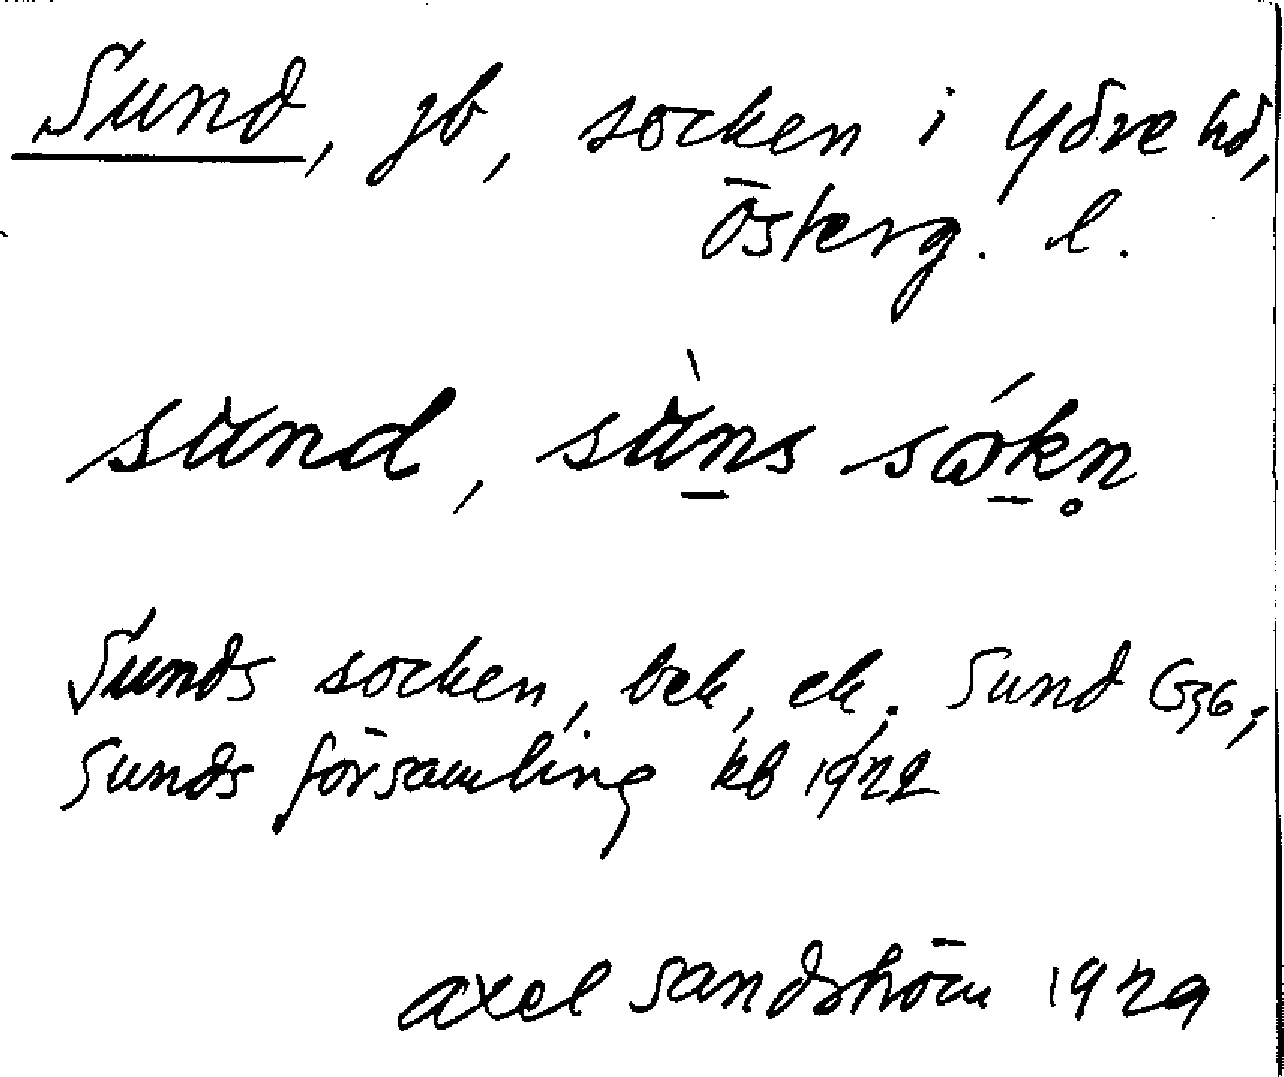 Sund, jb, socken i Ydre hd,
Österg. l.
sund, sùns sókn
Sunds socken, bek, ek. Sund G36;
Sunds församling kb 1922
Axel Sandström 1929